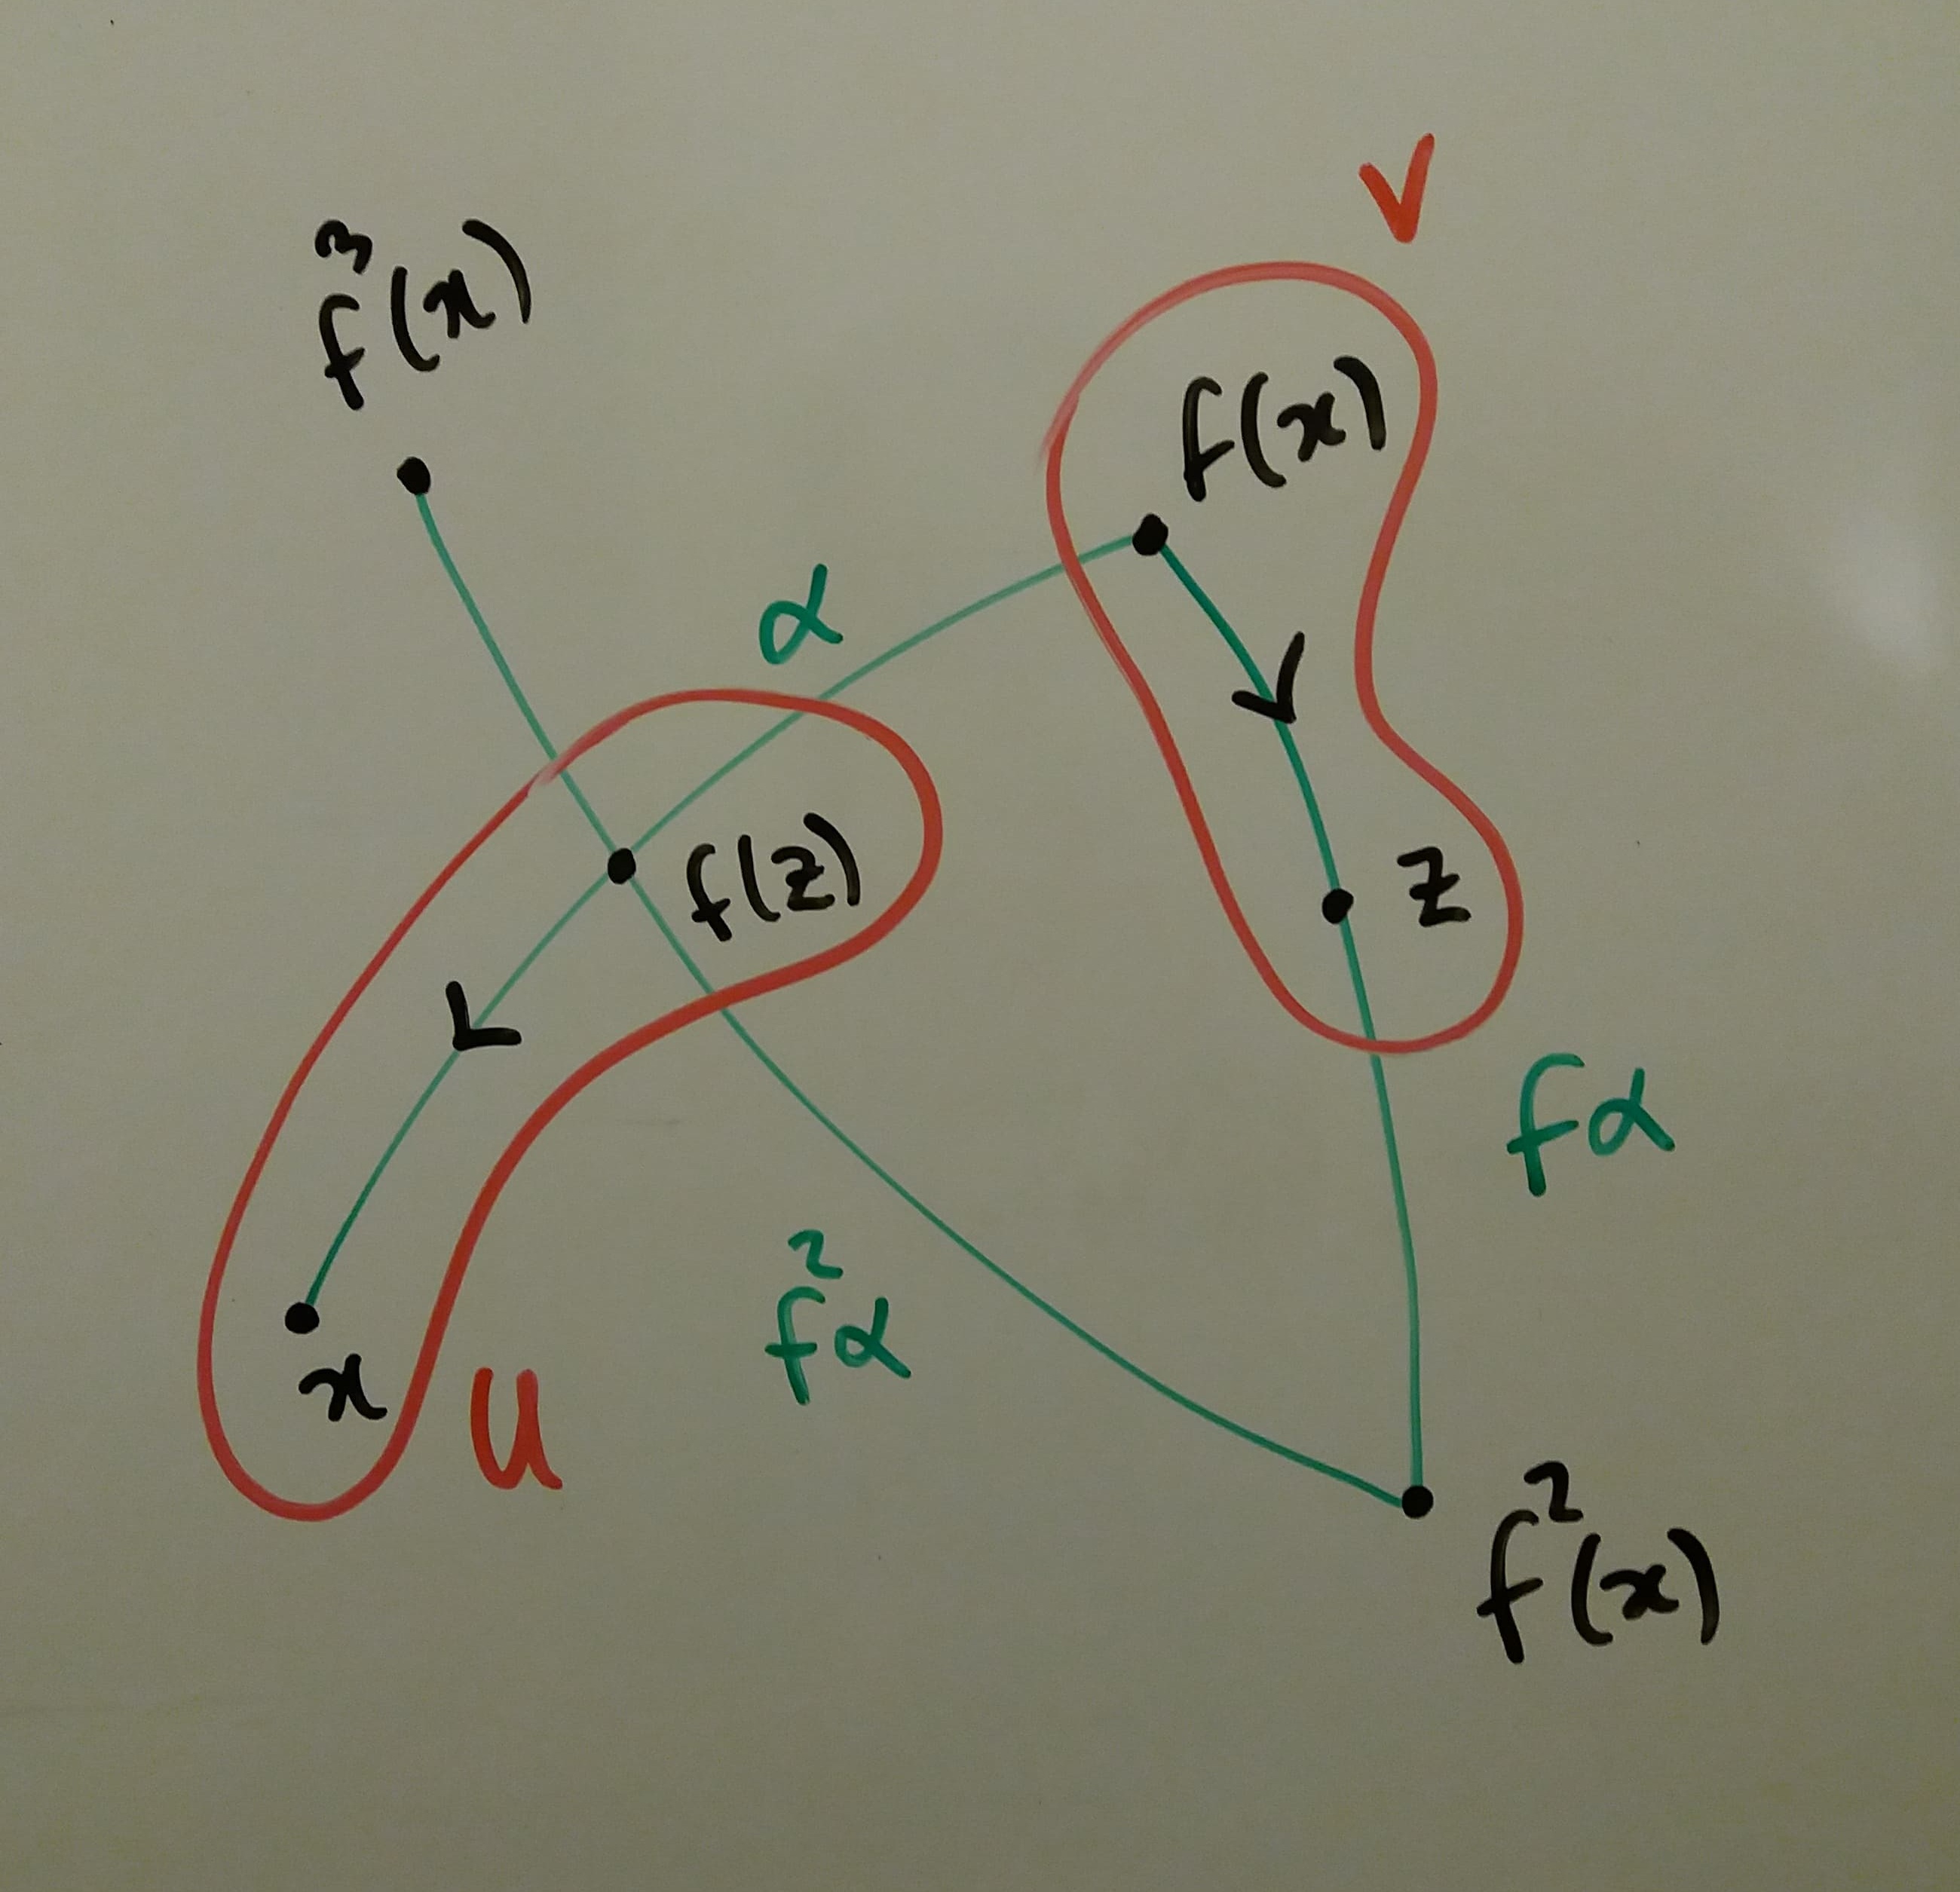 V
f³(x)
f(x)
α
f(z)
z
fα
f²α
x
U
f²(x)